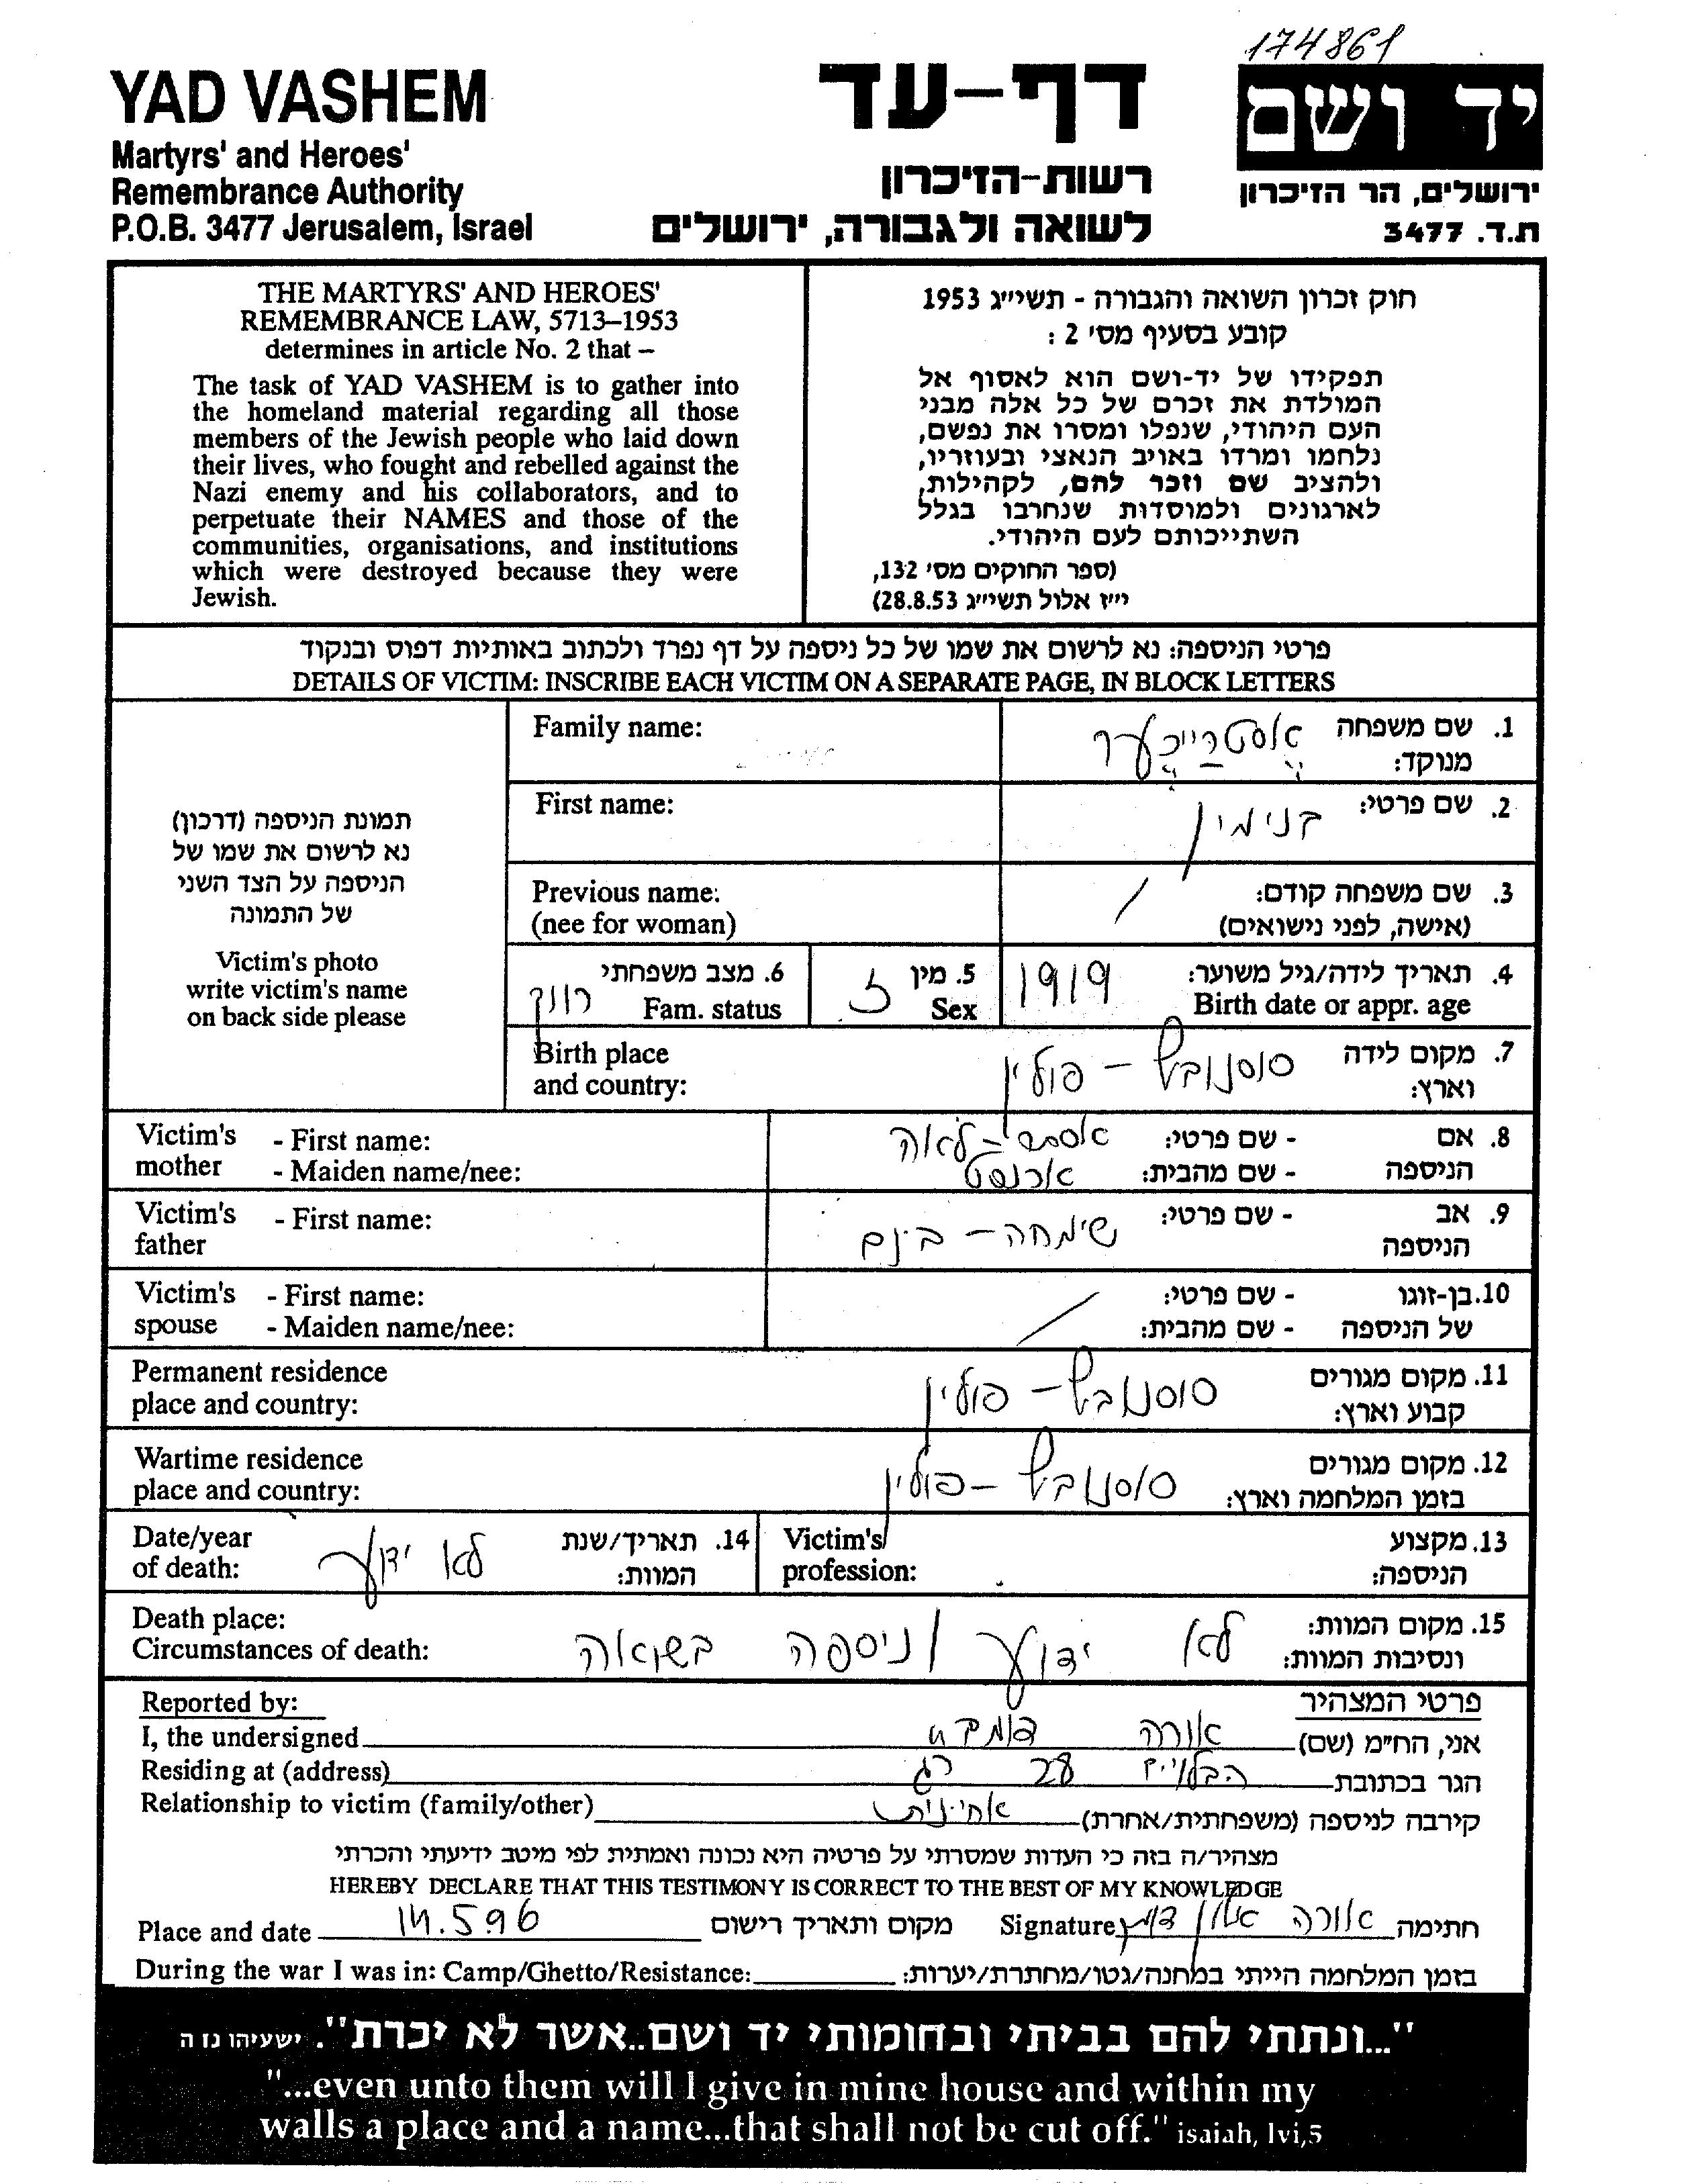 174861
YAD VASHEM
Martyrs' and Heroes'
Remembrance Authority
P.O.B. 3477 Jerusalem, Israel
דף-עד
רשות-הזיכרון
לשואה ולגבורה, ירושלים
יד ושם
ירושלים, הר הזיכרון
ת.ד. 3477
THE MARTYRS' AND HEROES'
REMEMBRANCE LAW, 5713–1953
determines in article No. 2 that –
The task of YAD VASHEM is to gather into
the homeland material regarding all those
members of the Jewish people who laid down
their lives, who fought and rebelled against the
Nazi enemy and his collaborators, and to
perpetuate their NAMES and those of the
communities, organisations, and institutions
which were destroyed because they were
Jewish.
חוק זכרון השואה והגבורה - תשי״ג 1953
קובע בסעיף מס' 2 :
תפקידו של יד-ושם הוא לאסוף אל
המולדת את זכרם של כל אלה מבני
העם היהודי, שנפלו ומסרו את נפשם,
נלחמו ומרדו באויב הנאצי ובעוזריו,
ולהציב שם וזכר להם, לקהילות,
לארגונים ולמוסדות שנחרבו בגלל
השתייכותם לעם היהודי.
(ספר החוקים מס' 132,
י״ז אלול תשי״ג 28.8.53)
פרטי הניספה: נא לרשום את שמו של כל ניספה על דף נפרד ולכתוב באותיות דפוס ובנקוד
DETAILS OF VICTIM: INSCRIBE EACH VICTIM ON A SEPARATE PAGE, IN BLOCK LETTERS
תמונת הניספה (דרכון)
נא לרשום את שמו של
הניספה על הצד השני
של התמונה
Victim's photo
write victim's name
on back side please
Family name: 1. שם משפחה
מנוקד:
First name: בנימין 2. שם פרטי:
Previous name: / 3. שם משפחה קודם:
(nee for woman) (אישה, לפני נישואים)
4. תאריך לידה/גיל משוער: 1919 5. מין ז 6. מצב משפחתי רווק
Birth date or appr. age Sex Fam. status
Birth place סוסנוביץ - פולין 7. מקום לידה
and country: וארץ:
Victim's - First name: אסתר-לאה - שם פרטי: 8. אם
mother - Maiden name/nee: ארנסט - שם מהבית: הניספה
Victim's - First name: שימחה - בינם - שם פרטי: 9. אב
father הניספה
Victim's - First name: / - שם פרטי: 10. בן-זוגו
spouse - Maiden name/nee: - שם מהבית: של הניספה
Permanent residence סוסנוביץ - פולין 11. מקום מגורים
place and country: קבוע וארץ:
Wartime residence סוסנוביץ - פולין 12. מקום מגורים
place and country: בזמן המלחמה וארץ:
Date/year לא ידוע 14. תאריך/שנת Victim's 13. מקצוע
of death: המוות: profession: הניספה:
Death place: לא ידוע / ניספה בשואה 15. מקום המוות:
Circumstances of death: ונסיבות המוות:
Reported by: פרטי המצהיר
I, the undersigned אורה אני, הח״מ (שם)
Residing at (address) 28 הגר בכתובת
Relationship to victim (family/other) אחיינית קירבה לניספה (משפחתית/אחרת)
מצהיר/ה בזה כי העדות שמסרתי על פרטיה היא נכונה ואמתית לפי מיטב ידיעתי והכרתי
HEREBY DECLARE THAT THIS TESTIMONY IS CORRECT TO THE BEST OF MY KNOWLEDGE
Place and date 14.5.96 מקום ותאריך רישום Signature אורה חתימה
During the war I was in: Camp/Ghetto/Resistance: בזמן המלחמה הייתי במחנה/גטו/מחתרת/יערות:
"...ונתתי להם בביתי ובחומותי יד ושם..אשר לא יכרת". ישעיהו נו ה
"...even unto them will I give in mine house and within my
walls a place and a name...that shall not be cut off." isaiah, lvi,5